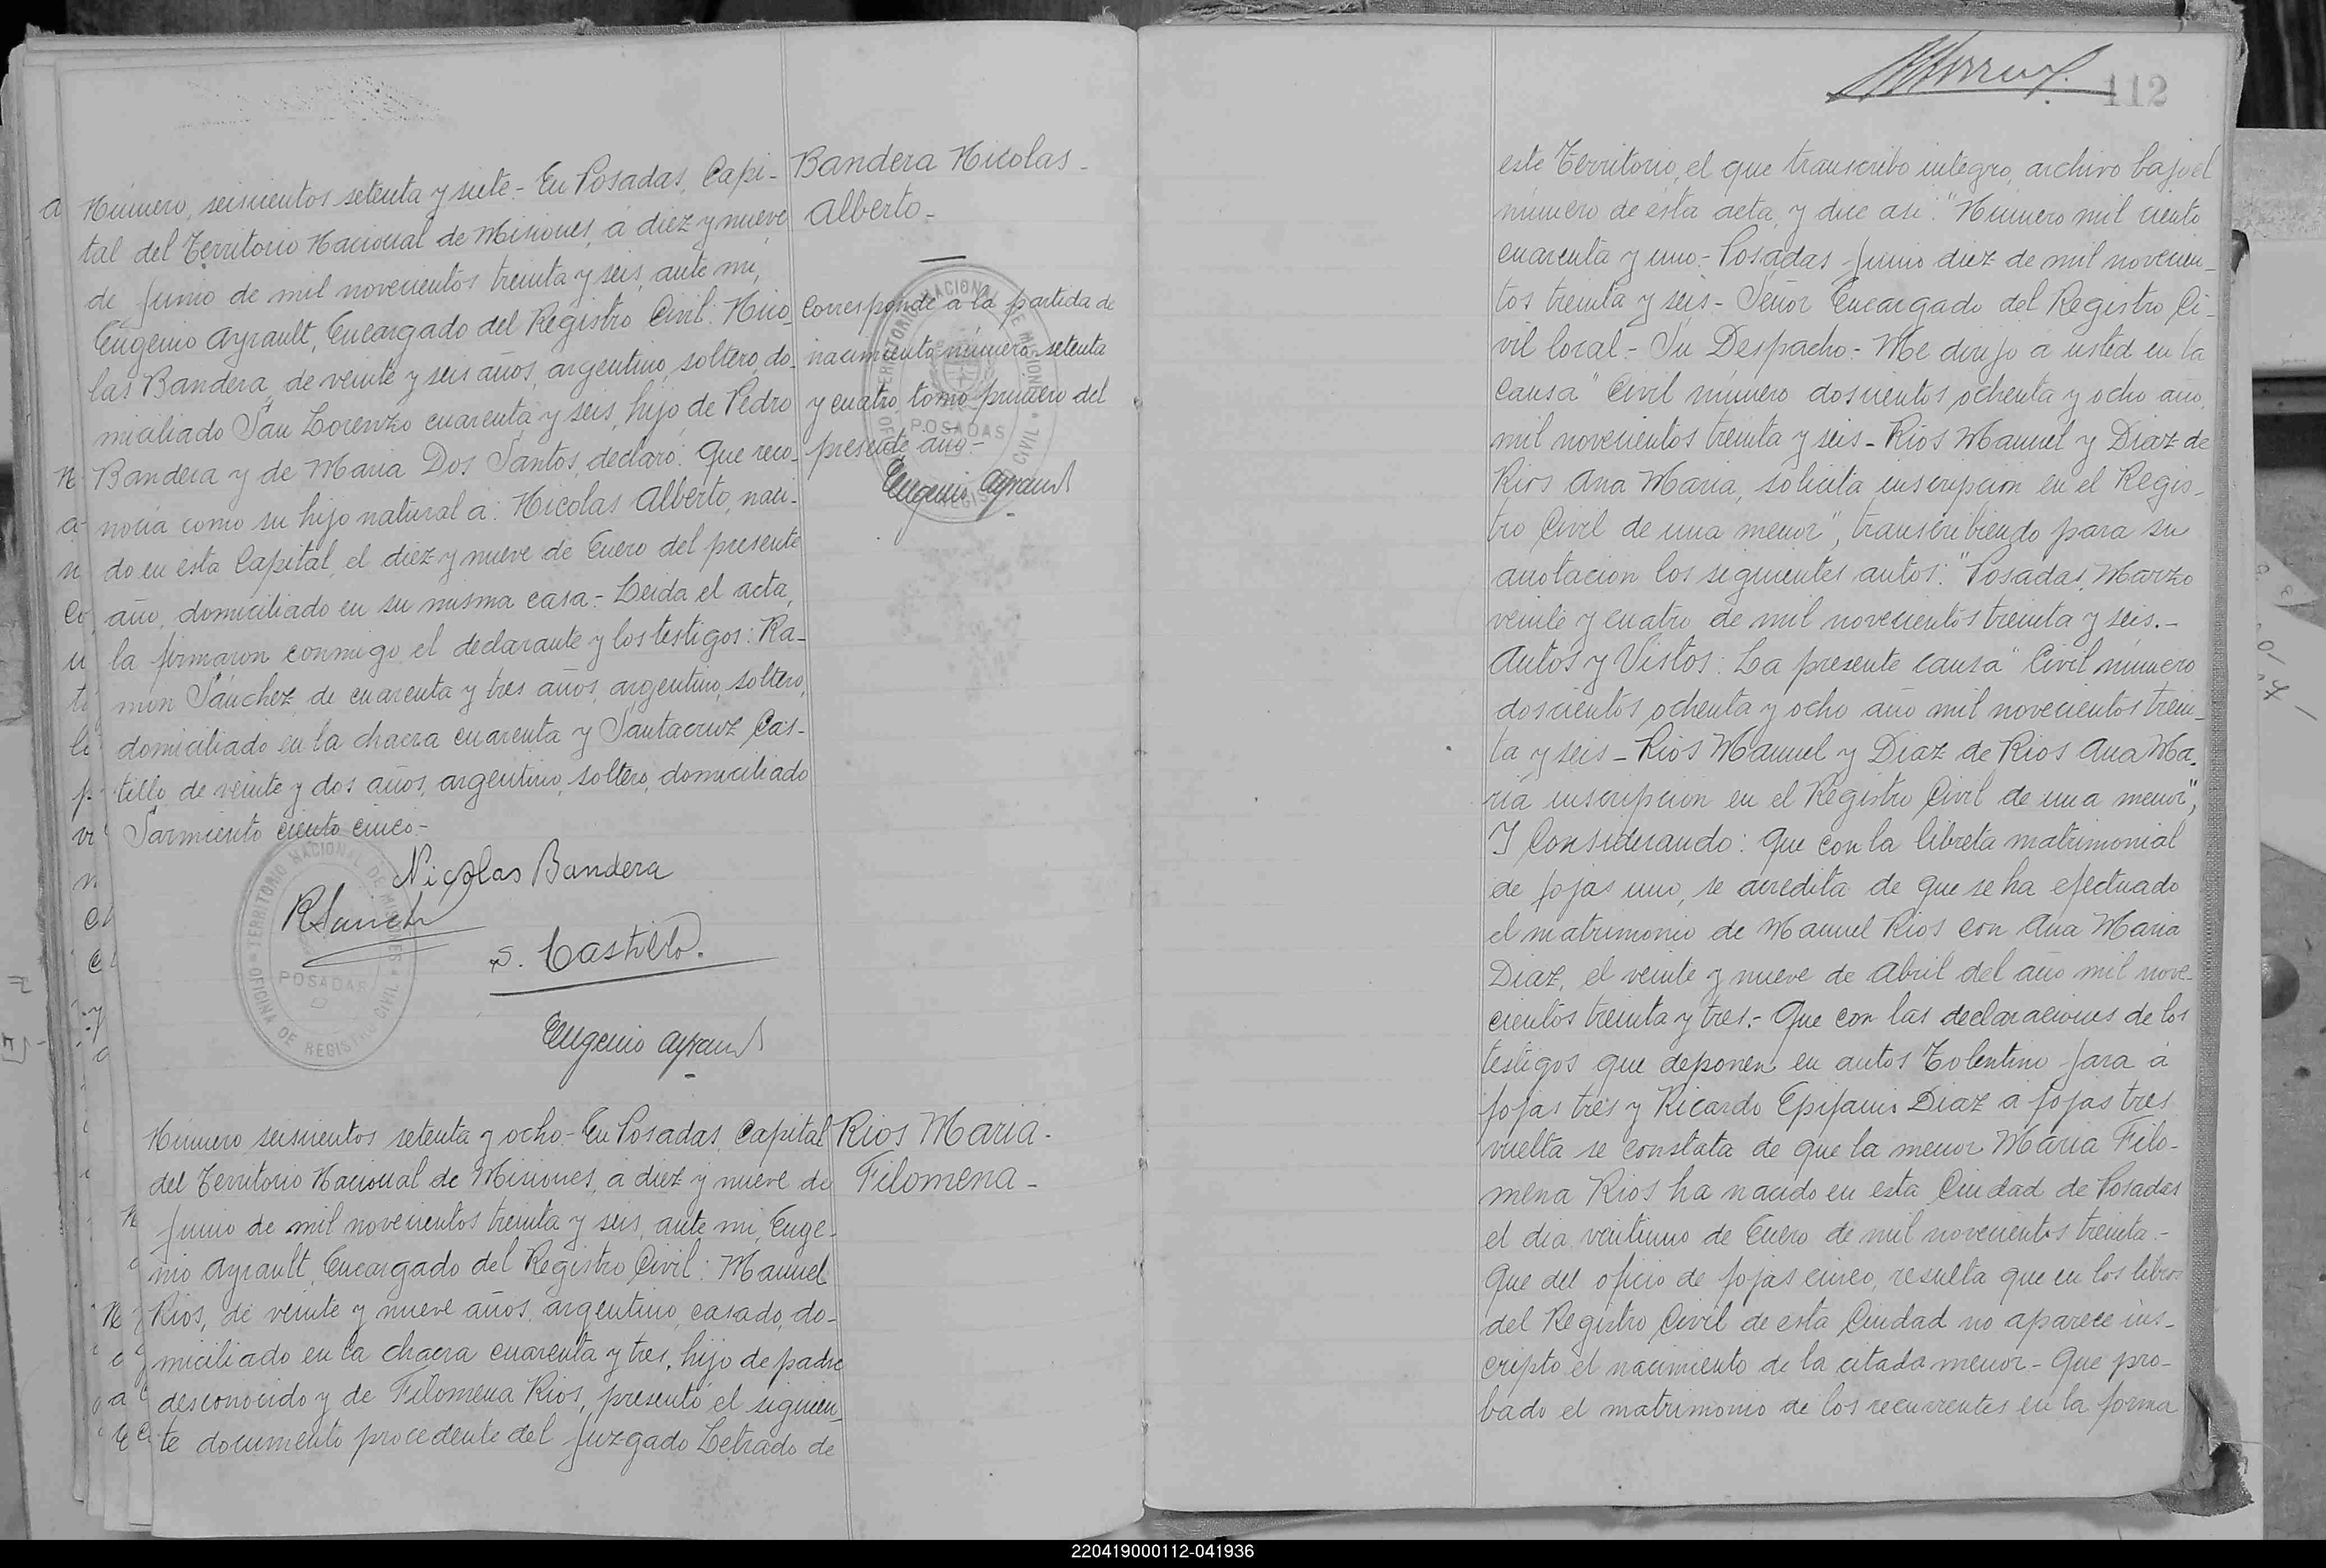 Número, seiscientos setenta y siete.- En Posadas, Capi-
tal del Territorio Nacional de Misiones, á diez y nueve
de Junio de mil novecientos treinta y seis, ante mi,
Eugenio Ayrault, Encargado del Registro Civil: Nico-
las Bandera, de veinte y seis años, argentino, soltero, do-
miciliado San Lorenzo cuarenta y seis, hijo de Pedro
Bandera y de Maria Dos Santos, declaró: Que reco-
nocia como su hijo natural á: Nicolas Alberto, naci-
do en esta Capital, el diez y nueve de Enero del presente
año, domiciliado en su misma casa.- Leida el acta,
la firmaron conmigo el declarante y los testigos: Ra-
mon Sánchez, de cuarenta y tres años, argentino, soltero,
domiciliado en la chacra cuarenta y Santacruz Cas-
tillo, de veinte y dos años, argentino, soltero, domiciliado
Sarmiento ciento cinco.-
Nicolas Bandera
S. Castillo.
Eugenio Ayrault
TERRITORIO NACIONAL DE MISIONES
POSADAS
OFICINA DE REGISTRO CIVIL
Bandera Nicolas-
Alberto-
Corresponde á la partida de
nacimiento número setenta
y cuatro, tomo primero del
presente año.-
Eugenio Ayrault
TERRITORIO NACIONAL DE MISIONES
POSADAS
OFICINA DE REGISTRO CIVIL
Número seiscientos setenta y ocho.- En Posadas, Capital
del Territorio Nacional de Misiones, á diez y nueve de
Junio de mil novecientos treinta y seis, ante mi, Euge-
nio Ayrault, Encargado del Registro Civil: Manuel
Rios, de veinte y nueve años, argentino, casado, do-
miciliado en la chacra cuarenta y tres, hijo de padre
desconocido y de Filomena Rios, presentó el siguien-
te documento procedente del Juzgado Letrado de
Rios Maria-
Filomena-
112
este Territorio, el que transcribo integro, archivo bajo el
número de esta acta, y dice asi: "Número mil ciento
cuarenta y uno.- Posadas Junio diez de mil novecien-
tos treinta y seis- Señor Encargado del Registro Ci-
vil local.- Su Despacho.- Me dirijo á usted en la
causa "Civil número doscientos ochenta y ocho año,
mil novecientos treinta y seis- Rios Manuel y Diaz de
Rios Ana Maria, solicita inscripción en el Regis-
tro Civil de una menor", transcribiendo para su
anotacion los siguientes autos: "Posadas, Marzo
veinte y cuatro de mil novecientos treinta y seis.-
Autos y Vistos: La presente causa "Civil número
doscientos ochenta y ocho año mil novecientos trein-
ta y seis- Rios Manuel y Diaz de Rios Ana Ma-
ria inscripcion en el Registro Civil de una menor",
Y Considerando: Que con la libreta matrimonial
de fojas uno, se acredita de que se ha efectuado
el matrimonio de Manuel Rios con Ana Maria
Diaz, el veinte y nueve de Abril del año mil nove-
cientos treinta y tres.- Que con las declaraciones de los
testigos que deponen en autos Tolentino Jara á
fojas tres y Ricardo Epifanio Diaz a fojas tres
vuelta se constata de que la menor Maria Filo-
mena Rios ha nacido en esta Ciudad de Posadas
el dia veintiuno de Enero de mil novecientos treinta.-
Que del oficio de fojas cinco, resulta que en los libros
del Registro Civil de esta Ciudad no aparece ins-
cripto el nacimiento de la citada menor- Que pro-
bado el matrimonio de los recurrentes en la forma
220419000112-041936